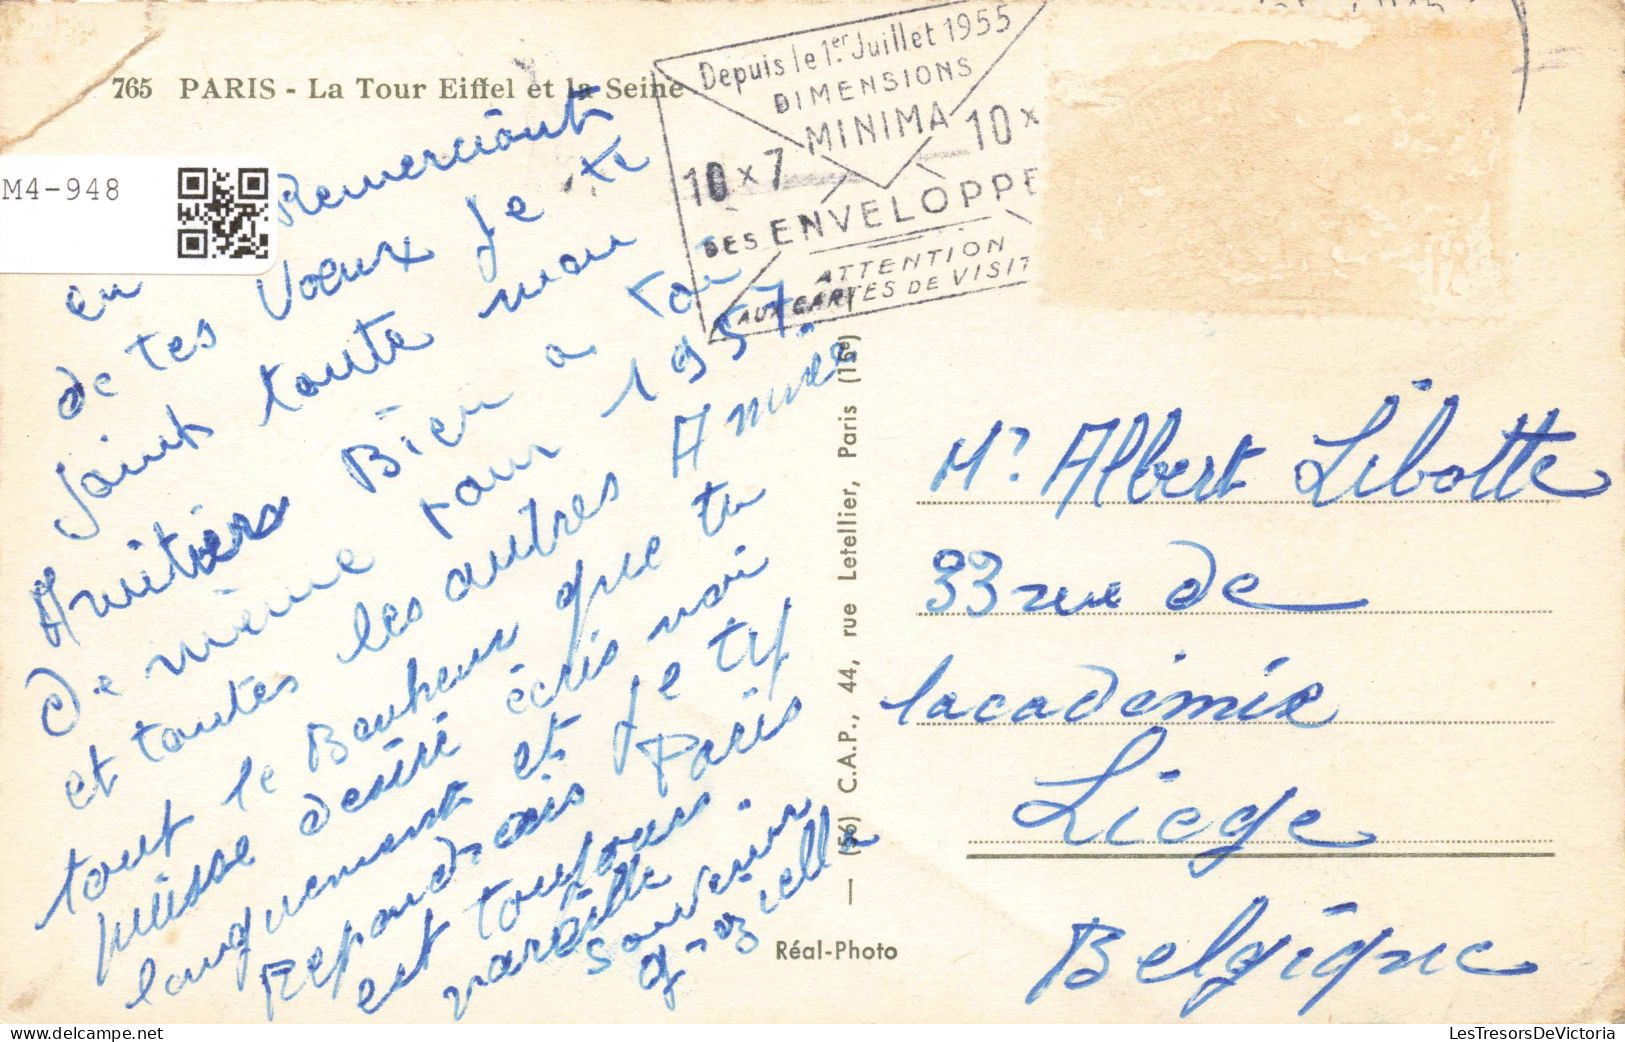 765 PARIS - La Tour Eiffel et la Seine
M4-948
Depuis le 1er Juillet 1955
DIMENSIONS
MINIMA
10 x 7 10 x
DES ENVELOPPE
ATTENTION
AUX CARTES DE VISIT
en Remerciant
de tes Vœux Je te
Joint toute mon
Amitiers Bien a toi
de même pour 1957.
et toutes les autres Année
tout le Bonheur que tu
puisse desiré écris moi
longuement et Je ty
Repondrais Paris
est toujours
pareille
souvenir
graziella
(56) C.A.P., 44, rue Letellier, Paris (15e)
Réal-Photo
Mr Albert Libotte
33 rue de
lacadémie
Liege
Belgique
LesTresorsDeVictoria